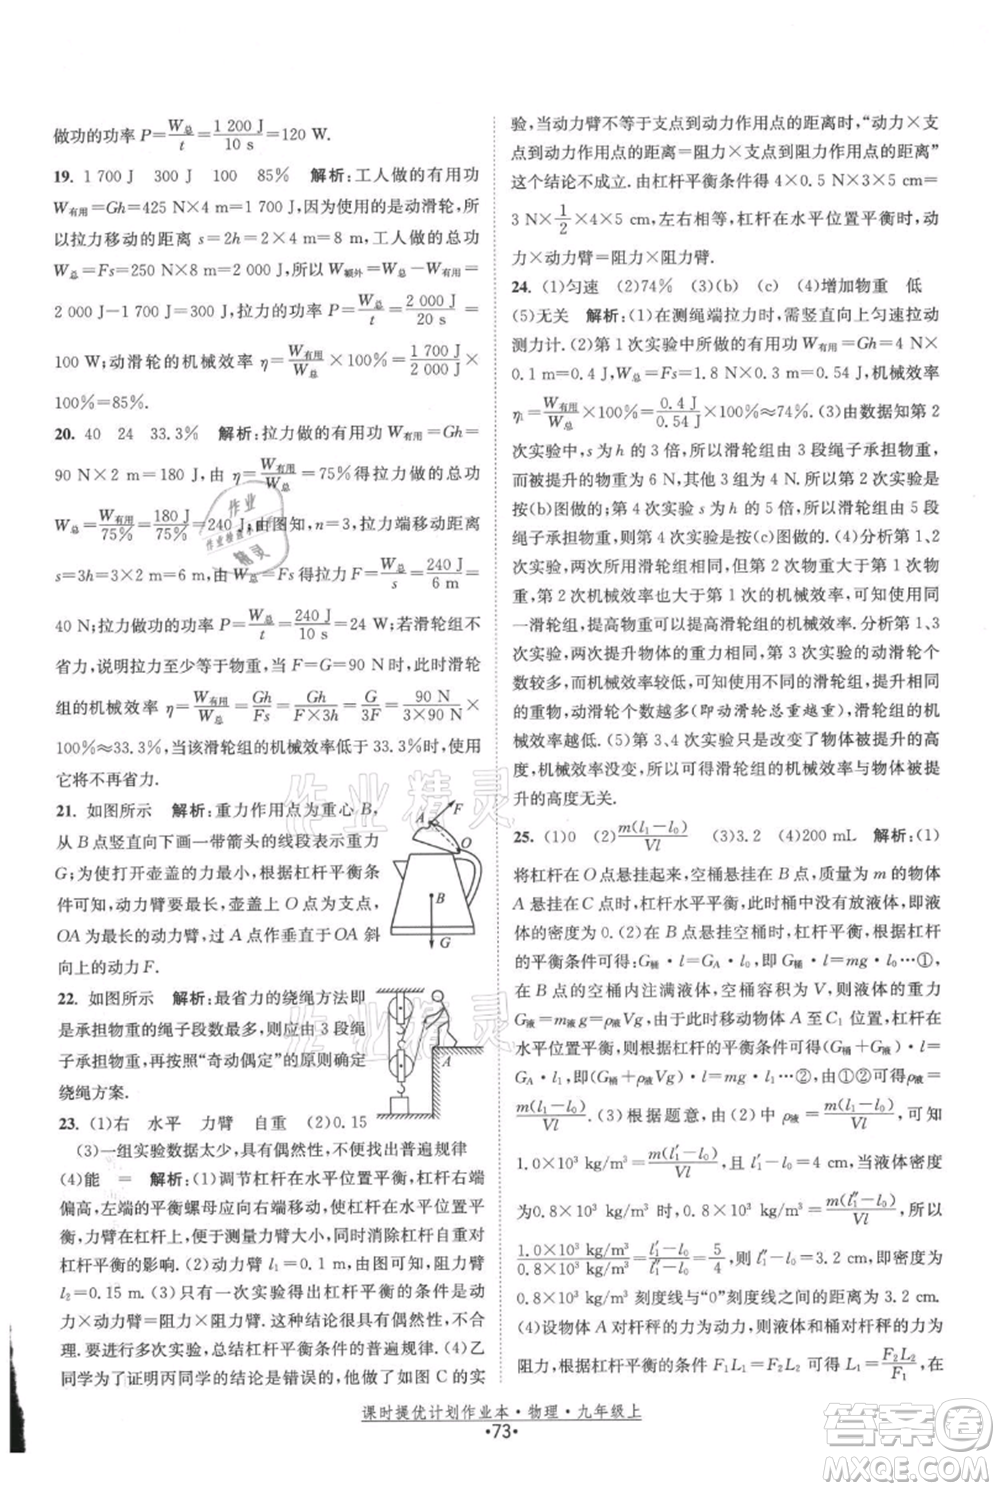 做功的功率 P=W总/t=1 200 J/10 s=120 W.
19. 1 700 J　300 J　100　85%　解析:工人做的有用功
W有用=Gh=425 N×4 m=1 700 J,因为是动滑轮,所
以拉力移动的距离 s=2h=2×4 m=8 m,工人做的总功
W总=Fs=250 N×8 m=2 000 J,所以 W额外=W总-W有用=
2 000 J-1 700 J=300 J;拉力的功率 P=W总/t=2 000 J/20 s=
100 W;动滑轮的机械效率 η=W有用/W总×100%=1 700 J/2 000 J×
100%=85%.
20. 40　24　33.3%　解析:拉力做的有用功 W有用=Gh=
90 N×2 m=180 J,由 η=W有用/W总=75%得拉力做的总功
W总=W有用/75%=180 J/75%=240 J;由图知,n=3,拉力端移动距离
s=3h=3×2 m=6 m,由W总=Fs得拉力F=W总/s=240 J/6 m=
40 N;拉力做功的功率 P=W总/t=240 J/10 s=24 W;若滑轮组不
省力,说明拉力至少等于物重,当 F=G 时,此时滑轮
组的机械效率 η=W有用/W总=Gh/Fs=Gh/F×3h=G/3F=90 N/3×90 N×
100%≈33.3%,当该滑轮组的机械效率低于 33.3%时,使用
它将不再省力.
21. 如图所示　解析:重力作用点为重心 B,
从 B 点竖直向下画一带箭头的线段为重力
G;要求作打开壶盖的最小力,根据杠杆平衡条
件可知,动力臂要最长,壶盖上的 O 为支点,
OA 为最长的动力臂,过 A 点作垂直于OA 斜
向上的动力 F.
A
F
O
B
G
22. 如图所示　解析:最省力的绕绳方法即
是承担物重的绳子段数最多,则应由 3 段绳
子承担物重,再按照“奇动偶定”的原则确定
绕绳方案.
A
23. (1)右　水平　力臂　自重　(2)0.15
(3)一组实验数据太少,具有偶然性,不便找出普遍规律
(4)能　=　解析:(1)调节杠杆在水平位置平衡,杠杆右端
偏高,左端的平衡螺母应向右端移动,右端的平衡螺母也
向右端移动.使杠杆在水平位置平衡的目的:一是便于
在杠杆上直接测量力臂;二是避免杠杆自重对
杠杆平衡的影响.(2)图中,阻力作用点 A 到支
点 O 的距离即为阻力臂.由图知,动力臂 l₁=0.1 m,阻力臂
l₂=0.15 m.(3)只有一次实验得出杠杆平衡的条件是:动
力×动力臂=阻力×阻力臂.这种结论很具有偶然
性.要进行多次实验,总结杠杆平衡条件的普遍规律.(4)乙
同学为了证明丙同学的结论是错误的,他做了如图 C 的实
验,当动力臂不等于支点到动力作用点的距离时,“动力×支
点到动力作用点的距离=阻力×支点到阻力作用点的距离”
这个结论不成立.由杠杆平衡条件得 4×0.5 N×3 cm=
3 N×1/2×4 cm,左右相等,杠杆在水平位置平衡时,有
动力×动力臂=阻力×阻力臂.
24. (1)匀速　(2)74%　(3)(b)　(c)　(4)增加物重　低
(5)无关　解析:(1)在测绳端拉力时,需竖直向上匀速拉动
测力计.(2)第 1 次实验中所做的有用功 W有用=Gh=4 N×
0.1 m=0.4 J,总功 W总=Fs=1.8 N×0.3 m=0.54 J,机械效率
η₁=W有用/W总×100%=0.4 J/0.54 J×100%≈74%.(3)由数据知第 2
次实验中,s为 h 的 3 倍,说明滑轮组由 3 段绳子承担物重,
而被提升的物重为 6 N,所以第 2 次实验中所使用的滑轮组
是按(b)图做的.第 4 次实验 s 为 h 的 5 倍,说明滑轮组由 5 段
绳子承担物重,所以是按(c)图做的.(4)分析第 1、2 次实验
所使用的滑轮组相同,而第 2 次提升的物重大于第 1 次提升
的物重,第 2 次的机械效率高于第 1 次的机械效率,即使用同
一滑轮组,提高物重可以提高滑轮组的机械效率.分析第 1、3
次实验,两次提升物体的重力相同,而第 3 次承担物重的绳子段
数较多,但机械效率却较低,所以不同的滑轮组,提升相同
的重物,动滑轮的个数越多(即动滑轮总重越重),滑轮组的机械
效率越低.(5)第 3、4 次实验只是改变了物体被提升的高
度,机械效率没变,所以可得出滑轮组的机械效率与物体被提
升的高度无关.
25. (1)0　(2)m(l₁-l₀)/Vl　(3)3.2　(4)200 mL　解析:(1)
将杠杆在 O 点悬挂起来,空桶悬挂在 B 点,质量为 m 的物体
悬挂在 A 点处,杠杆水平平衡,此时桶中没有液体,即液体的密
度为 0.(2)以 O 为支点,悬挂空桶时,杠杆平衡,根据杠杆
的平衡条件可得:G桶·l=GA·l₀,即G桶·l=mg·l₀…①,
在 B 点的空桶内注满液体,空桶的容积为V,液体的重力
G液=m液g=ρ液Vg,向右移动物体 A 至 C₁ 位置,杠杆在
水平位置平衡,根据杠杆的平衡条件可得:(G桶+G液)·l=
mg·l₁,即(G桶+ρ液Vg)·l=mg·l₁…②,由①②可得ρ液=
m(l₁-l₀)/Vl.(3)根据题意,由(2)可知 ρ液=m(l₁-l₀)/Vl,可知
1.0×10³ kg/m³=m(l₁′-l₀)/Vl,且 l₁′-l₀=4 cm,当液体密度
为0.8×10³ kg/m³ 时,0.8×10³ kg/m³=m(l₁″-l₀)/Vl,所以
1.0×10³ kg/m³/0.8×10³ kg/m³=l₁′-l₀/l₁″-l₀=5/4,则 l₁″-l₀=3.2 cm,所以
0.8×10³ kg/m³ 刻度线与“0”刻度线之间的距离为 3.2 cm.
(4)设物体 A 对杆秤的力为动力,桶对杆秤的力为
阻力,根据杠杆平衡的条件 F₁L₁=F₂L₂ 可得,L₁=F₂L₂/F₁,在
课时提优计划作业本·物理·九年级上
·73·
作业精灵
作业
作业检查小助手
精灵
作业精灵
答案圈
MXQE.COM